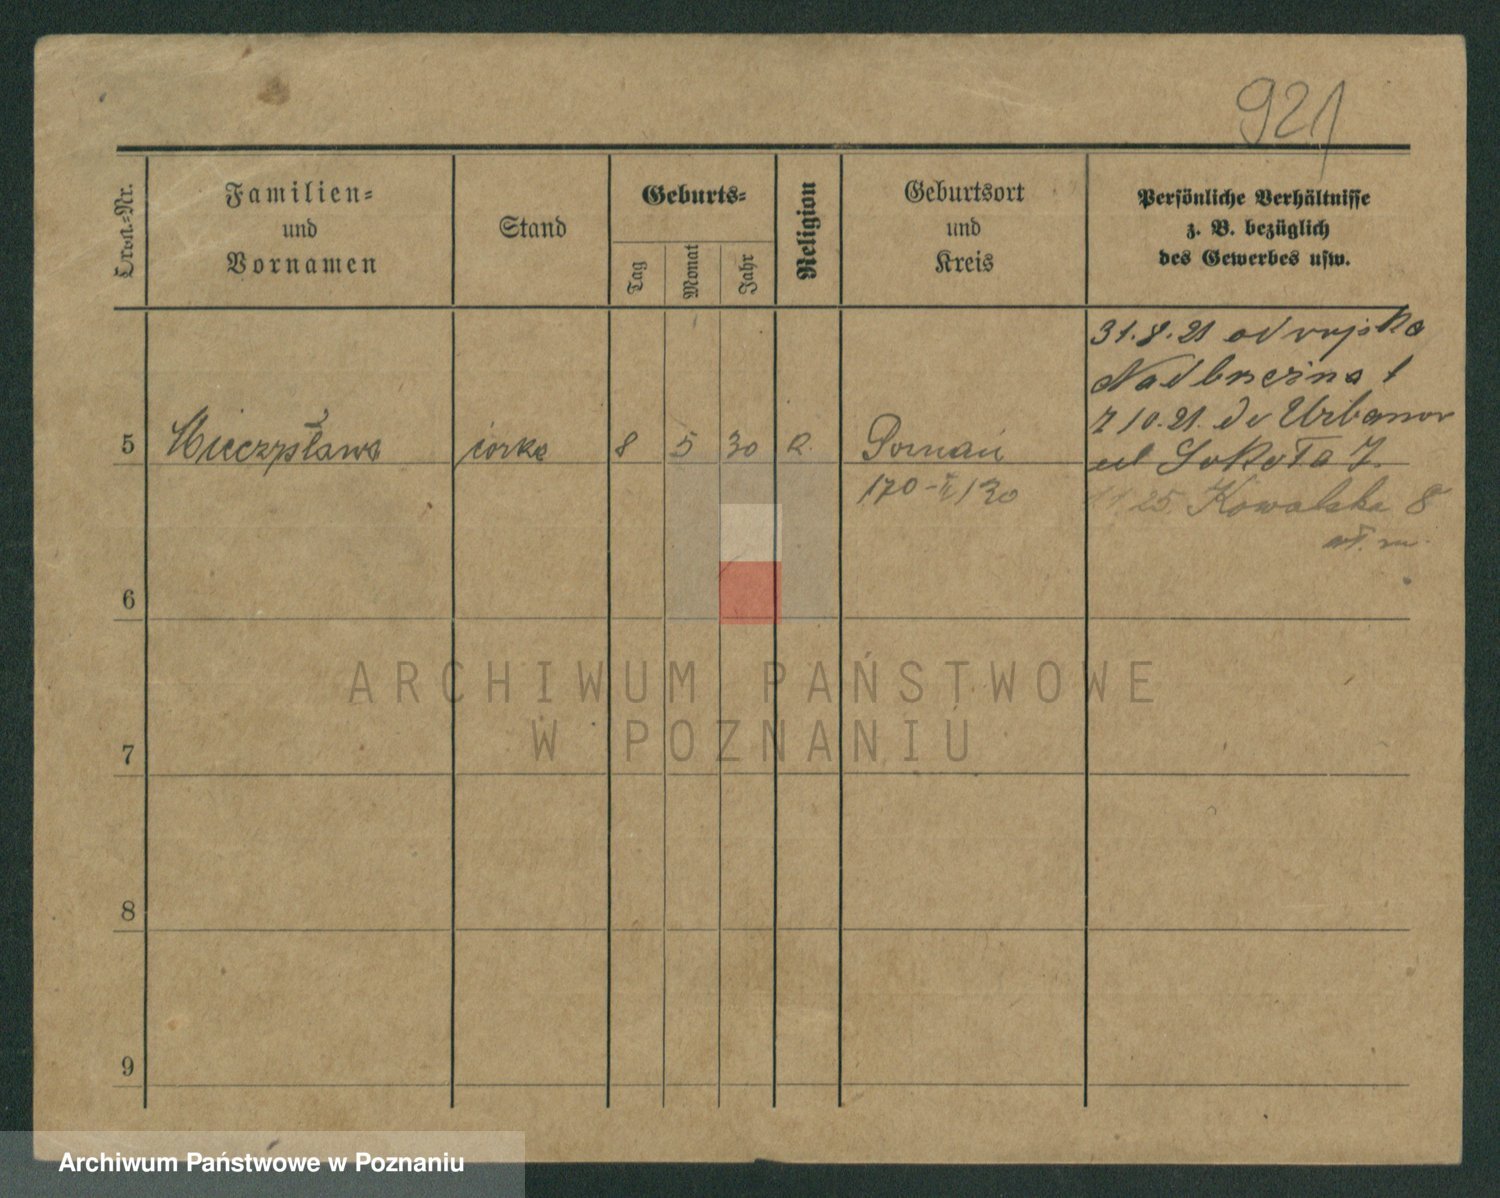 921
Lfde.-Nr.
Familien=
und
Vornamen
Stand
Geburts=
Tag
Monat
Jahr
Religion
Geburtsort
und
Kreis
Persönliche Verhältnisse
z. B. bezüglich
des Gewerbes usw.
31.8.21 od wojska
Nadbrzeżna 1
7 10.21. do Urbanow
ul Sokoła 7.
5 Mieczysława córka 8 5 30 R. Poznań
170- /30
25. Kowalska 8
6
7
8
9
ARCHIWUM PAŃSTWOWE
W POZNANIU
Archiwum Państwowe w Poznaniu